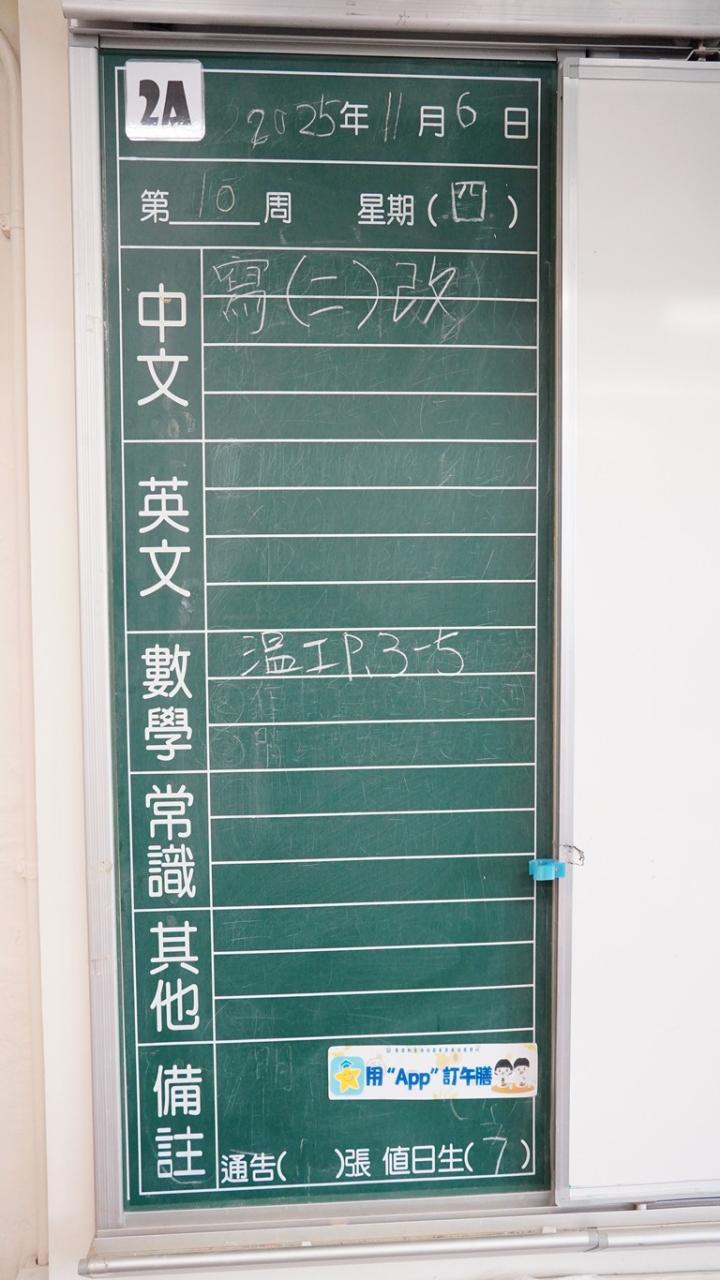 2A
2025年11月6日
第10周 星期(四)
中文
寫(二)改
英文
數學
溫工P.3-5
常識
其他
備註
用“App”訂午膳
通告( )張 值日生(7)